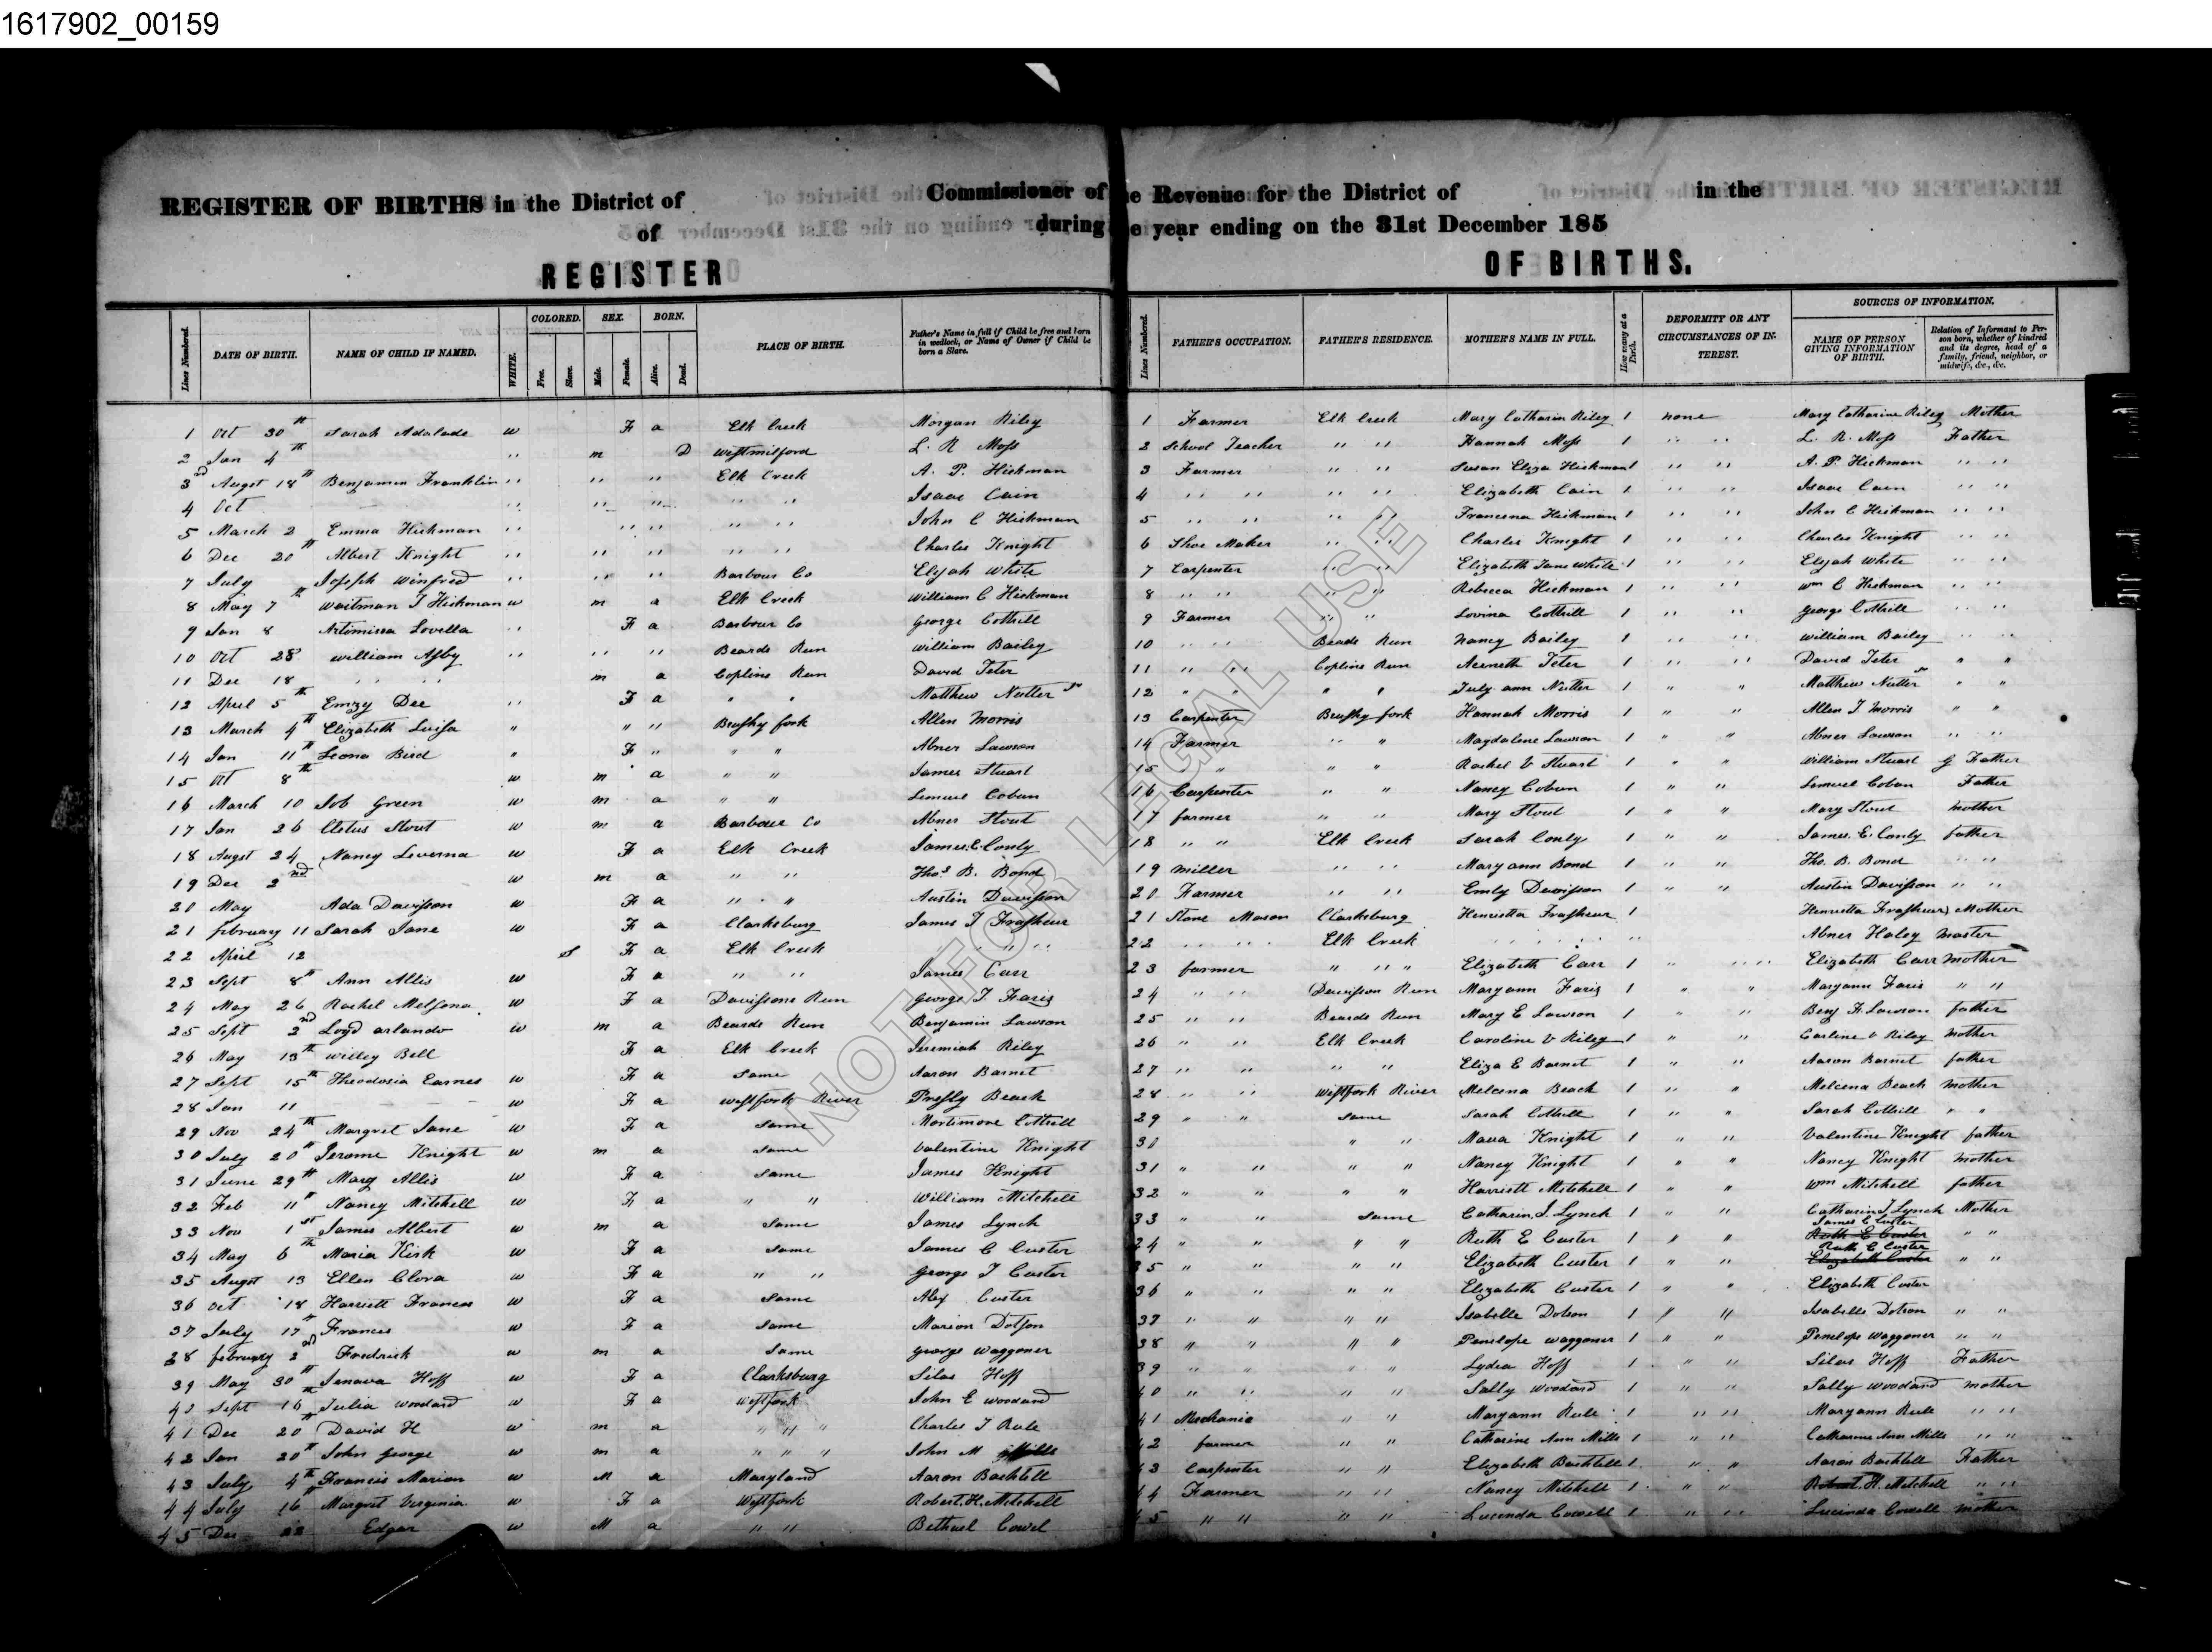 1617902_00159
REGISTER OF BIRTHS in the District of Commissioner of the Revenue for the District of in the
of during the year ending on the 31st December 185
REGISTER OF BIRTHS.
Lines Numbered. DATE OF BIRTH. NAME OF CHILD IF NAMED. WHITE. COLORED. Free. Slave. SEX. Male. Female. BORN. Alive. Dead. PLACE OF BIRTH. Father's Name in full if Child be free and born in wedlock, or Name of Owner if Child be born a Slave. Lines Numbered. FATHER'S OCCUPATION. FATHER'S RESIDENCE. MOTHER'S NAME IN FULL. How many at a Birth. DEFORMITY OR ANY CIRCUMSTANCES OF INTEREST. SOURCES OF INFORMATION. NAME OF PERSON GIVING INFORMATION OF BIRTH. Relation of Informant to Person born, whether of kindred and its degree, head of a family, friend, neighbor, or midwife, &c., &c.
1 Oct 30th Sarah Adalade w F a Elk Creek Morgan Riley 1 Farmer Elk Creek Mary Catharin Riley 1 none Mary Catharine Riley Mother
2 Jan 4th " m D Westmilford L. R Moss 2 School Teacher " " Hannah Moss 1 " " L. R. Moss Father
3 Augst 18th Benjamin Franklin " " " Elk Creek A. P. Hickman 3 Farmer " " Susan Eliza Hickman 1 " " A. P. Hickman " "
4 Oct " " " " " Isaac Cain 4 " " " " Elizabeth Cain 1 " " Isaac Cain " "
5 March 2 Emma Hickman " " " " " John C Hickman 5 " " " " Francena Hickman 1 " " John C Hickman " "
6 Dec 20th Albert Knight " " " " " Charles Knight 6 Shoe Maker " " Charles Knight 1 " " Charles Knight " "
7 July Joseph Winfred " " " Barbour Co Elijah White 7 Carpenter " " Elizabeth Jane White 1 " " Elijah White " "
8 May 7th Waitman T Hickman w m a Elk Creek William C Hickman 8 " " " " Rebecca Hickman 1 " " Wm C Hickman " "
9 Jan 8 Artimissa Lovella " F a Barbour Co George Cottrill 9 Farmer " " Lovina Cottrill 1 " " George Cottrill " "
10 Oct 28 William Asby " " " Beards Run William Bailey 10 " " Beads Run Nancy Bailey 1 " " William Bailey " "
11 Dec 18 " " m a Coplins Run David Teter 11 " " Coplins Run Teter 1 " " David Teter " "
12 April 5th Emzy Dee " F a " " Matthew Nutter Sr 12 " " " " July ann Nutter 1 " " Matthew Nutter Sr " "
13 March 4th Elizabeth Luisa " " " Brushy fork Allen Morris 13 Carpenter Brushy fork Hannah Morris 1 " " Allen T. Morris " "
14 Jan 11th Leona Bird " F " " " Abner Lawson 14 Farmer " " Magdalene Lawson 1 " " Abner Lawson " "
15 Oct 8th w m a " " James Stuart 15 " " " " Rachel V Stuart 1 " " William Stuart G Father
16 March 10 Job Green w m a " " Lemuel Coban 16 Carpenter " " Nancy Coban 1 " " Lemuel Coban Father
17 Jan 26 Cletus Stout w m a Barbour Co Abner Stout 17 farmer " " Mary Stout 1 " " Mary Stout mother
18 Augst 24 Nancy Leverna w F a Elk Creek James. E. Conly 18 " " Elk Creek Sarah Conly 1 " " James. E. Conly father
19 Dec 2nd w m a " " Thos B. Bond 19 Miller " " Mary ann Bond 1 " " Tho. B. Bond " "
20 May Ada Davisson w F a " " Austin Davisson 20 Farmer " " Emly Davisson 1 " " Austin Davisson " "
21 february 11 Sarah Jane w F a Clarksburg James T Frasheur 21 Stone Mason Clarksburg Henrietta Frasheur 1 Henrietta Frasheur Mother
22 April 12 S F a Elk Creek " " 22 " " Elk Creek " " " Abner Haley Master
23 Sept 8th Ann Allis w F a " " James Carr 23 farmer " " " Elizabeth Carr 1 " " Elizabeth Carr mother
24 May 26 Rachel Melsena w F a Davissons Run George T. Faris 24 " " Davisson Run Maryann Faris 1 " " Maryann Faris " "
25 Sept 2nd Loyd arlando w m a Beards Run Benjamin Lawson 25 " " Beards Run Mary E Lawson 1 " " Benj F. Lawson father
26 May 13th Willey Bell F a Elk Creek Jeremiah Riley 26 " " Elk Creek Caroline V Riley 1 " " Carline V Riley mother
27 Sept 15th Theodosia Earnes w F a Same Aaron Barnet 27 " " " " Eliza E Barnet 1 " " Aaron Barnet father
28 Jan 11 w F a Westfork River Pressly Beach 28 " " Westfork River Melcena Beach 1 " " Melcena Beach mother
29 Nov 24th Margret Jane w F a Same Mortimore Cottrill 29 " " Same Sarah Cottrill 1 " " Sarah Cottrill " "
30 July 20th Jerome Knight w m a Same Valentine Knight 30 " " Knight 1 " " Valentine Knight father
31 June 29th Mary Allis w F a Same James Knight 31 " " " " Nancy Knight 1 " " Nancy Knight mother
32 Feb 11th Nancy Mitchell w F a " " William Mitchell 32 " " " " Harriett Mitchell 1 " " Wm Mitchell father
33 Nov 1st James Albert w m a Same James Lynch 33 " " Same Catharin. J. Lynch 1 " " Catharin J Lynch Mother
34 May 6th Maria Kirk w F a Same James C Custer 34 " " " " Ruth E Custer 1 " " Ruth E Custer James C Custer " "
35 Augst 13 Ellen Clora w F a " " George T Custer 35 " " " " Elizabeth Custer 1 " " Elizabeth Custer Ruth C Custer " "
36 Oct 18 Harriett Frances w F a Same Alex Custer 36 " " " " Elizabeth Custer 1 " " Elizabeth Custer
37 July 17th Frances w F a Same Marion Dotson 37 " " " " Isabelle Dotson 1 " " Isabelle Dotson " "
38 february 2nd Fredrick w m a Same George Waggoner 38 " " " " Penelope Waggoner 1 " " Penelope Waggoner " "
39 May 30th Jenava Hoff w F a Clarksburg Silas Hoff 39 " " " " Lydia Hoff 1 " " Silas Hoff Father
40 Sept 16th Julia Woodard w F a Westfork John E Woodard 40 " " " " Sally Woodard 1 " " Sally Woodard mother
41 Dec 20th David H w m a " " " Charles T Rule 41 Mechanic " " Maryann Rule 1 " " Maryann Rule " "
42 Jan 20th John George w m a " " " John M Mills 42 farmer " " Catharine Ann Mills 1 " " Catharine Ann Mills " "
43 July 4th Francis Marion w M a Maryland Aaron Bachtell 43 Carpenter " " Elizabeth Bachtell 1 " " Aaron Bachtell Father
44 July 16th Margret Virginia w F a Westfork Robert. H. Mitchell 44 Farmer " " Nancy Mitchell 1 " " Robert. H. Mitchell " "
45 Dec 22 Edgar w M a " " Bethuel Cowel 45 " " " " Lucinda Cowell 1 " " Lucinda Cowell mother
NOT FOR LEGAL USE